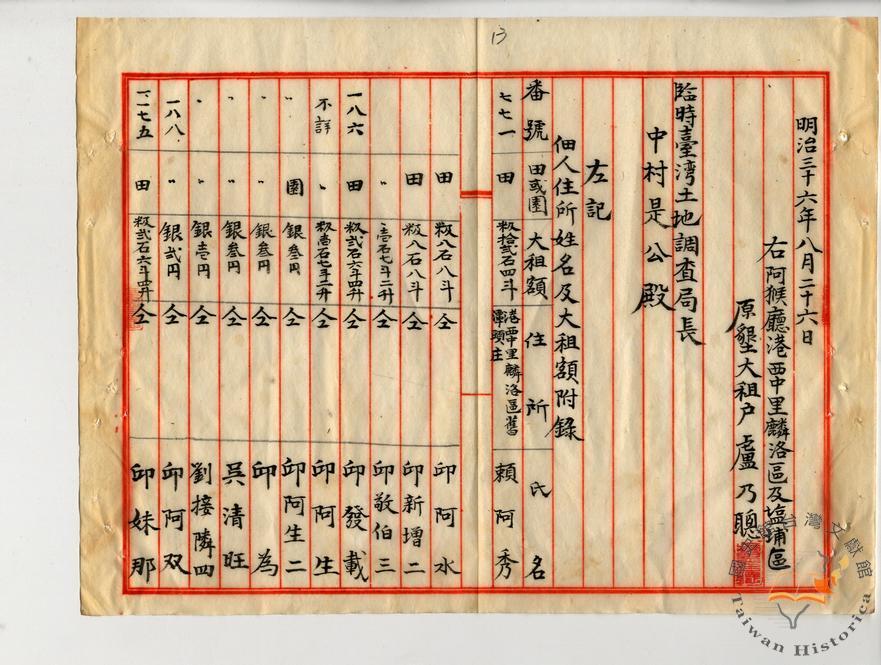 13
明治三十六年八月二十六日
右阿猴廳港西中里麟洛區及塩埔區
原墾大租户盧乃聰
臨時臺灣土地調查局長
中村是公殿
左記
佃人住所姓名及大租額附錄
番號 田或園 大租額 住所 氏名
七七一 田 籾拾弐石四斗 港西中里麟洛區舊潭頭庄 賴阿秀
田 籾八石八斗 仝 邱阿水
田 籾八石八斗 仝 邱新增二
〃 〃壱石七斗二升 仝 邱敬伯三
一八六 田 籾弐石六斗四升 仝 邱發載
不詳 〃 籾壱石七斗二升 仝 邱阿生
〃 園 銀叁円 仝 邱阿生二
〃 〃 銀叁円 仝 邱為
〃 〃 銀叁円 仝 吳清旺
〃 〃 銀壱円 仝 劉接隣四
一八八 〃 銀弐円 仝 邱阿双
一、一七五 田 籾弐石六斗四升 仝 邱妹那
國史館臺灣文獻館
Taiwan Historica